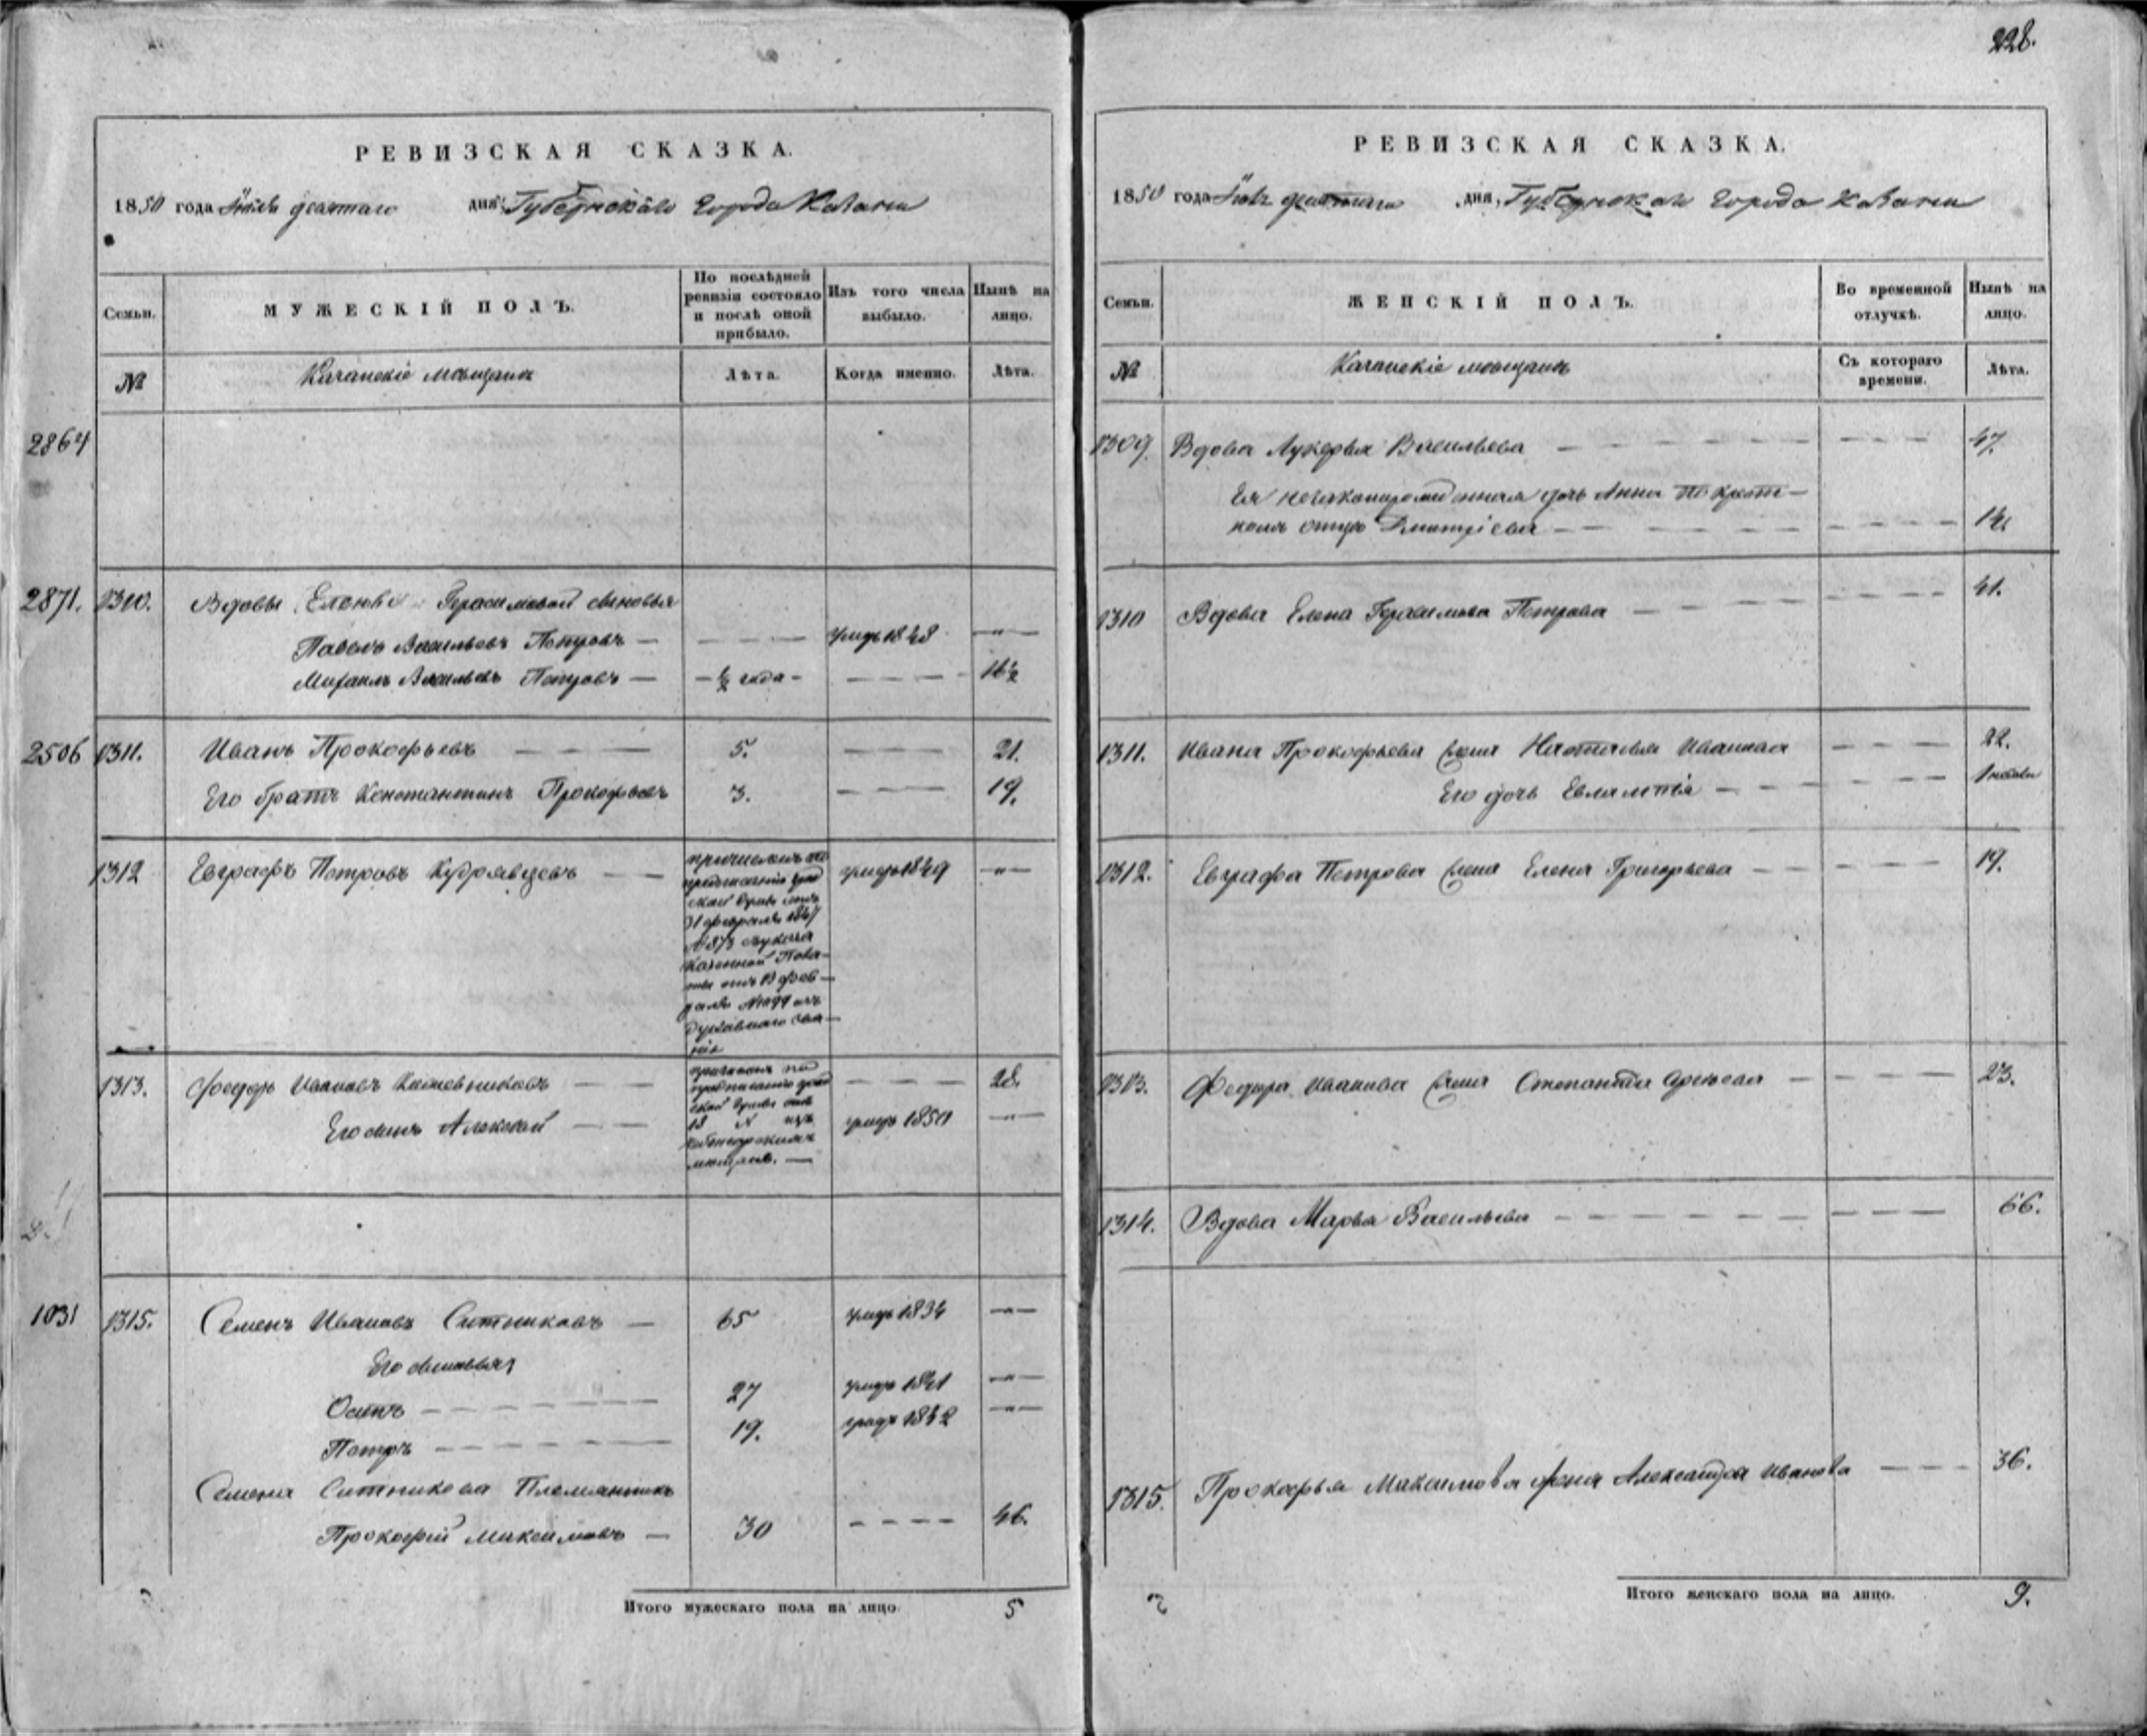 228.
РЕВИЗСКАЯ СКАЗКА.
1850 года Іюля девятаго дня, Губернскаго города Казани
Семьи. МУЖЕСКІЙ ПОЛЪ. По послѣдней ревизіи состояло и послѣ оной прибыло. Изъ того числа выбыло. Нынѣ на лицо.
№ Казанскіе мѣщане Лѣта. Когда именно. Лѣта.
2864
2871. 1310. Вдовы Елены Герасимовой сыновья
Павелъ Васильевъ Петровъ — — — — умеръ 1848 — " —
Михаилъ Васильевъ Петровъ — — ½ года — — — — — 16½
2506 1311. Иванъ Прокофьевъ — — — 5. — — — 21.
Его братъ Константинъ Прокофьевъ 3. — — — 19.
1312 Евграфъ Петровъ Кудрявцевъ — — умеръ 1849 — " —
причисленъ по
31 февраля 1847
№ 873 и указа
Казенной Пала-
ты отъ 13 фев-
раля
духовнаго зва-
нія
1313. Федоръ Ивановъ — — — — — — 28.
Его сынъ Алексей — — умеръ 1850 — " —
причисленъ по
13 № изъ
1031 1315. Семенъ Ивановъ Ситниковъ — 65 умеръ 1834 — " —
Его сыновья
Осипъ — — — — — 27 умеръ 1841 — " —
Петръ — — — — — 19. 1842 — " —
Семена Ситникова Племянникъ
Прокофій Максимовъ — 30 — — — — 46.
Итого мужескаго пола на лицо. 5
РЕВИЗСКАЯ СКАЗКА.
1850 года Іюля девятаго дня, Губернскаго города Казани
Семьи. ЖЕНСКІЙ ПОЛЪ. Во временной отлучкѣ. Нынѣ на лицо.
№ Казанскіе мѣщане Съ котораго времени. Лѣта.
1309. Вдова Лукерья Васильева — — — — — — — — 47.
Ея незаконнорожденная дочь Анна по крест-
ному отцу Дмитріева — — — — — — — — 14.
1310 Вдова Елена Герасимова Петрова — — — — — — — — 41.
1311. Ивана Прокофьева жена Наталья Иванова — — — — 22.
Его дочь Евлампія — — — — — — 1
1312. Евграфа Петрова жена Елена Григорьева — — — — — — 19.
1313. Федора Иванова жена Степанида — — — — — — 23.
1314. Вдова Марфа Васильева — — — — — — — — — 66.
1315. Прокофья Максимова жена Александра Иванова — — — 36.
Итого женскаго пола на лицо. 9.